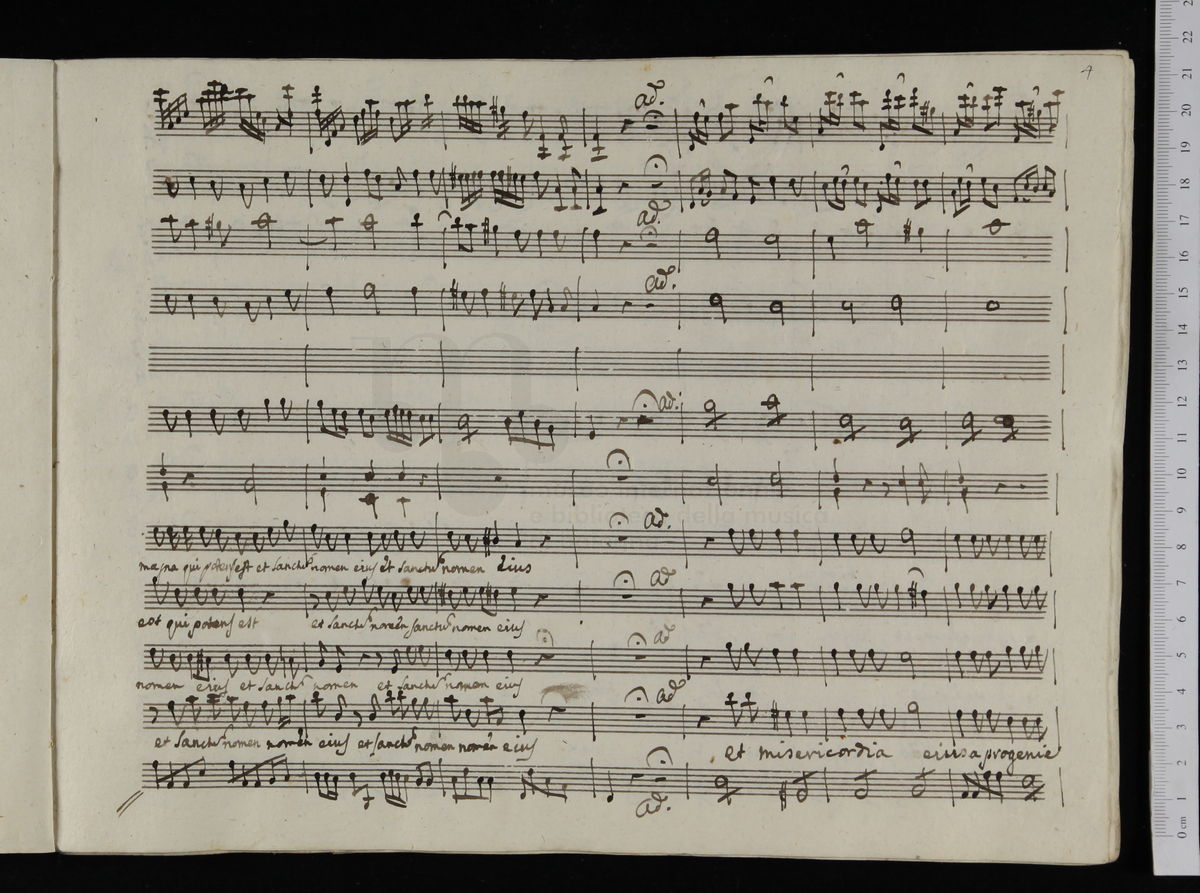 4
ad.
ad.
ad.
ad.
ad.
magna qui potens est et sanctu nomen eius et sanctu nomen eius
ad
est qui potens est et sanctu nomen sanctu nomen eius
ad
nomen eius et sanctu nomen et sanctu nomen eius
ad
et sanctu nomen nomen eius et sanctu nomen nomen eius et misericordia eius a progenie
ad.
biblioteca della musica
0 cm 1 2 3 4 5 6 7 8 9 10 11 12 13 14 15 16 17 18 19 20 21 22